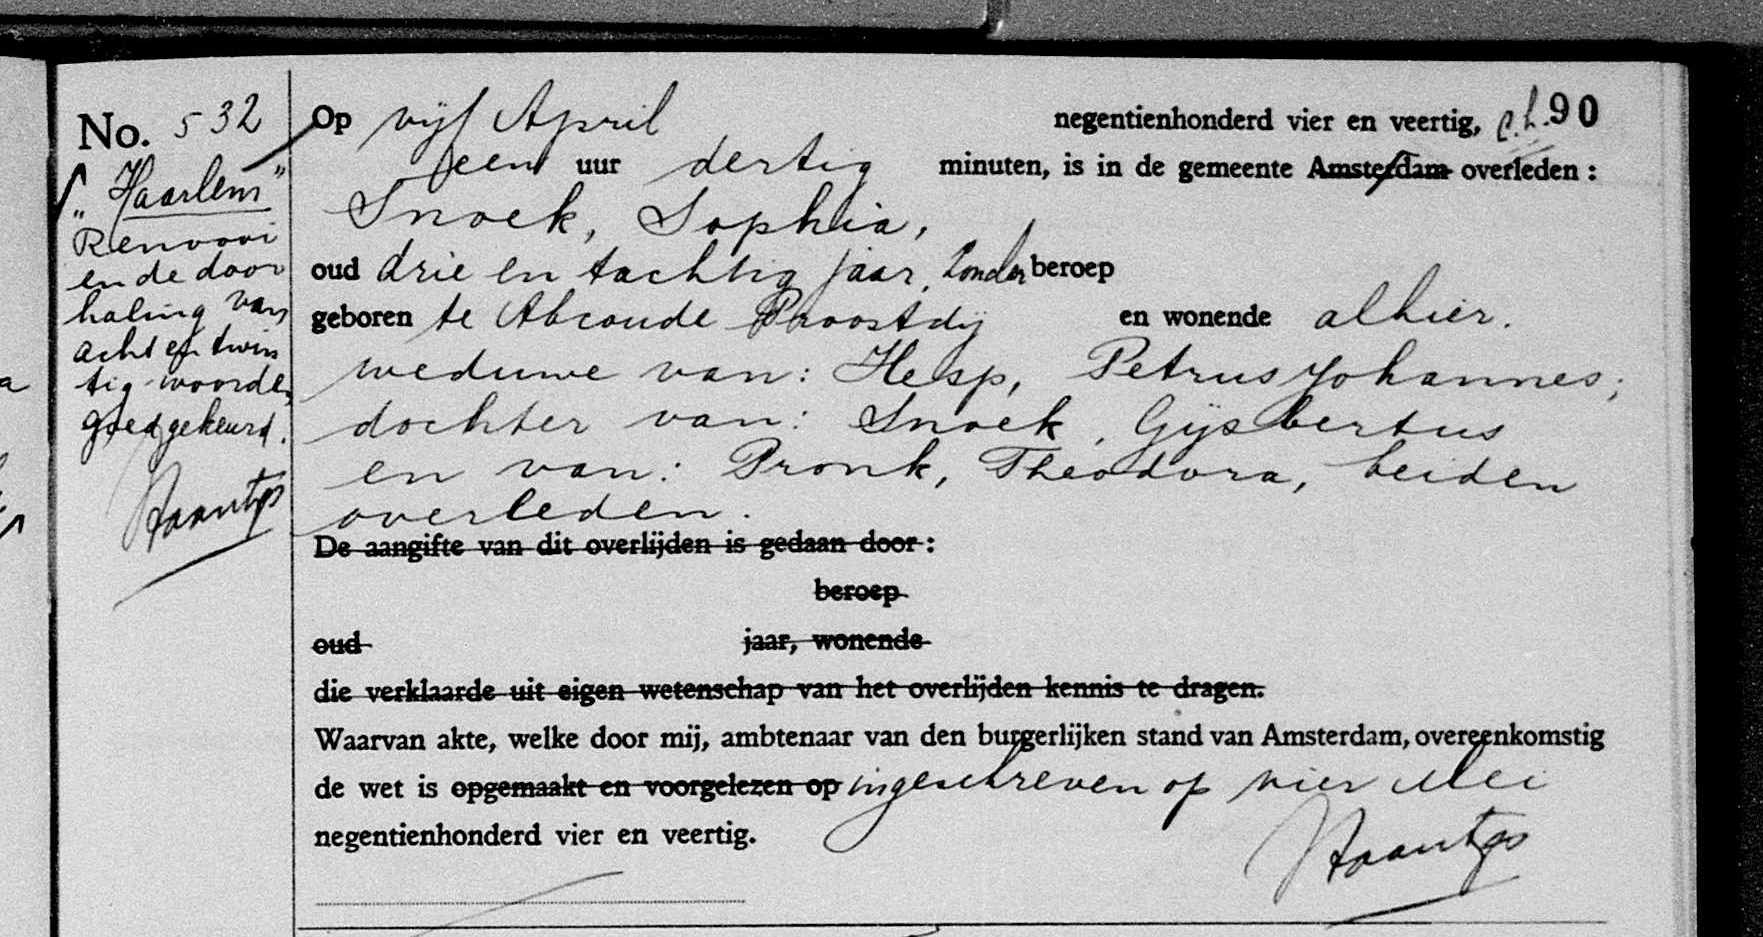 No. 532
Op vijf April negentienhonderd vier en veertig, 90
een uur dertig minuten, is in de gemeente Amsterdam overleden :
Snoek, Sophia,
oud drie en tachtig jaar, zonder beroep
geboren te Abcoude Proostdij en wonende alhier.
weduwe van: Hesp, Petrus Johannes;
dochter van: Snoek, Gijsbertus
en van: Pronk, Theodora, beiden
overleden.
De aangifte van dit overlijden is gedaan door :
beroep
oud jaar, wonende
die verklaarde uit eigen wetenschap van het overlijden kennis te dragen.
Waarvan akte, welke door mij, ambtenaar van den burgerlijken stand van Amsterdam, overeenkomstig
de wet is opgemaakt en voorgelezen op ingeschreven op vier Mei
negentienhonderd vier en veertig.
„Haarlem"
Renvooi
en de door
haling van
acht en twin
tig woorden
goedgekeurd.